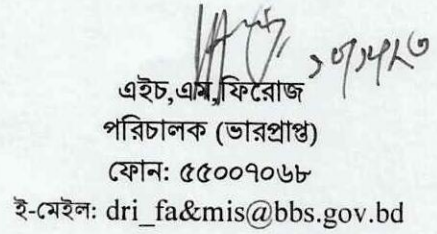 এইচ,এম,ফিরোজ
পরিচালক (ভারপ্রাপ্ত)
ফোন: ৫৫০০৭০৬৮
ই-মেইল: dri_fa&mis@bbs.gov.bd